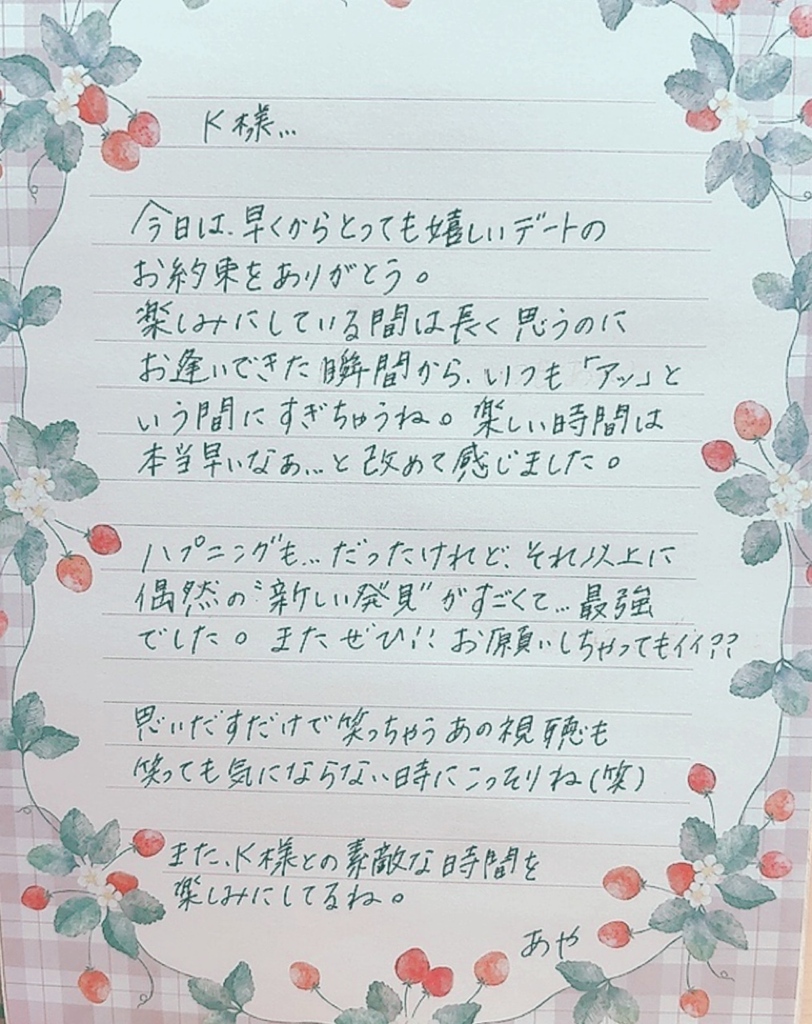 K様...
今日は、早くからとっても嬉しいデートの
お約束をありがとう。
楽しみにしている間は長く思うのに
お逢いできた瞬間から、いつも「アッ」と
いう間にすぎちゃうね。楽しい時間は
本当早いなぁ...と改めて感じました。
ハプニングも...だったけれど、それ以上に
偶然の"新しい発見"がすごくて...最強
でした。またぜひ!!お願いしちゃってもイイ??
思いだすだけで笑っちゃうあの視聴も
笑っても気にならない時にこっそりね(笑)
また、K様との素敵な時間を
楽しみにしてるね。
あや